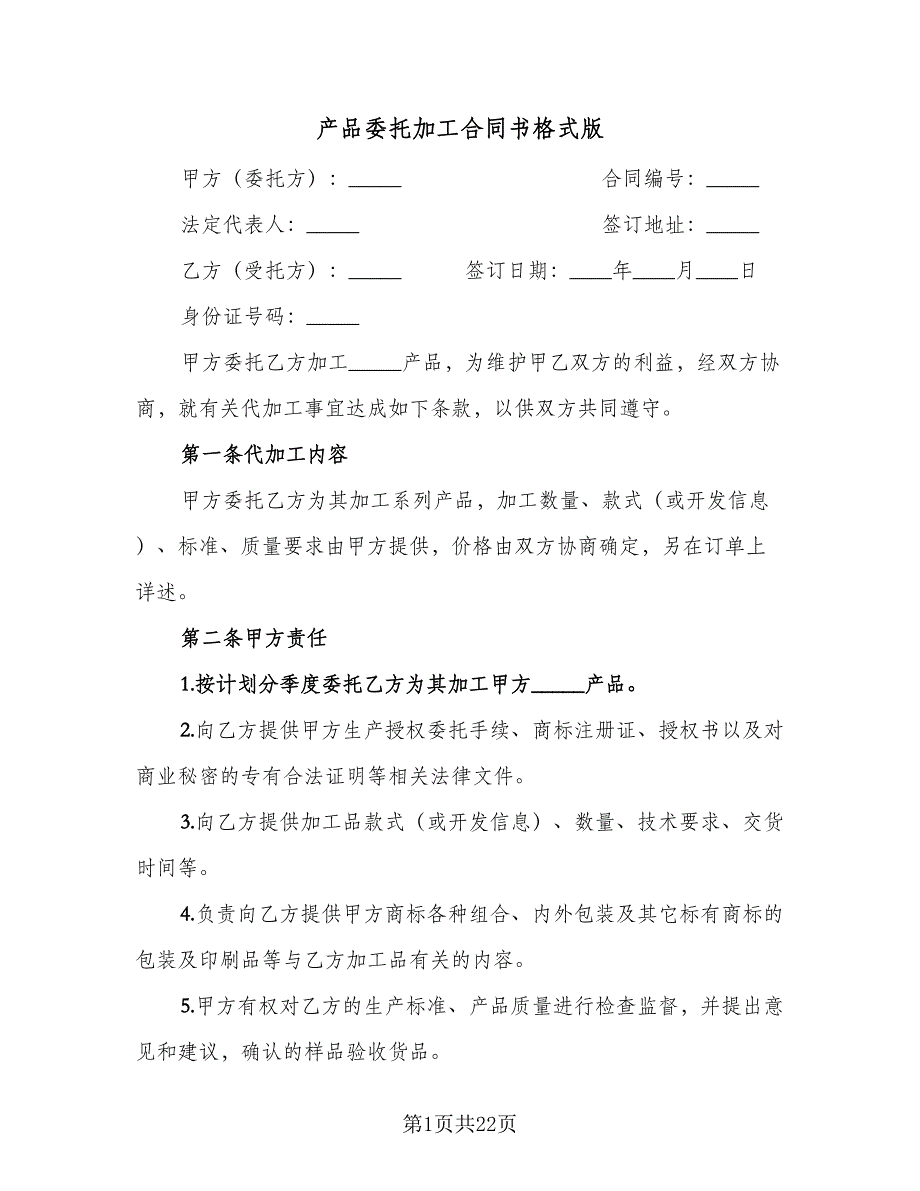 产品委托加工合同书格式版
甲方（委托方）：_____ 合同编号：_____
法定代表人：_____ 签订地址：_____
乙方（受托方）：_____ 签订日期：____年____月____日
身份证号码：_____
甲方委托乙方加工_____产品，为维护甲乙双方的利益，经双方协
商，就有关代加工事宜达成如下条款，以供双方共同遵守。
第一条代加工内容
甲方委托乙方为其加工系列产品，加工数量、款式（或开发信息
）、标准、质量要求由甲方提供，价格由双方协商确定，另在订单上
详述。
第二条甲方责任
1.按计划分季度委托乙方为其加工甲方_____产品。
2.向乙方提供甲方生产授权委托手续、商标注册证、授权书以及对
商业秘密的专有合法证明等相关法律文件。
3.向乙方提供加工品款式（或开发信息）、数量、技术要求、交货
时间等。
4.负责向乙方提供甲方商标各种组合、内外包装及其它标有商标的
包装及印刷品等与乙方加工品有关的内容。
5.甲方有权对乙方的生产标准、产品质量进行检查监督，并提出意
见和建议，确认的样品验收货品。
第1页共22页